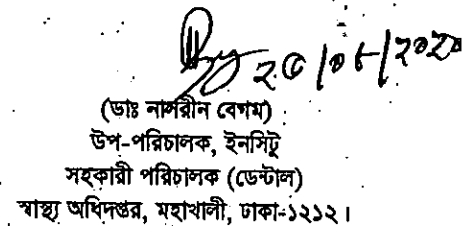 (ডাঃ নাসরীন বেগম)
উপ-পরিচালক, ইনসিটু
সহকারী পরিচালক (ডেন্টাল)
স্বাস্থ্য অধিদপ্তর, মহাখালী, ঢাকা-১২১২।